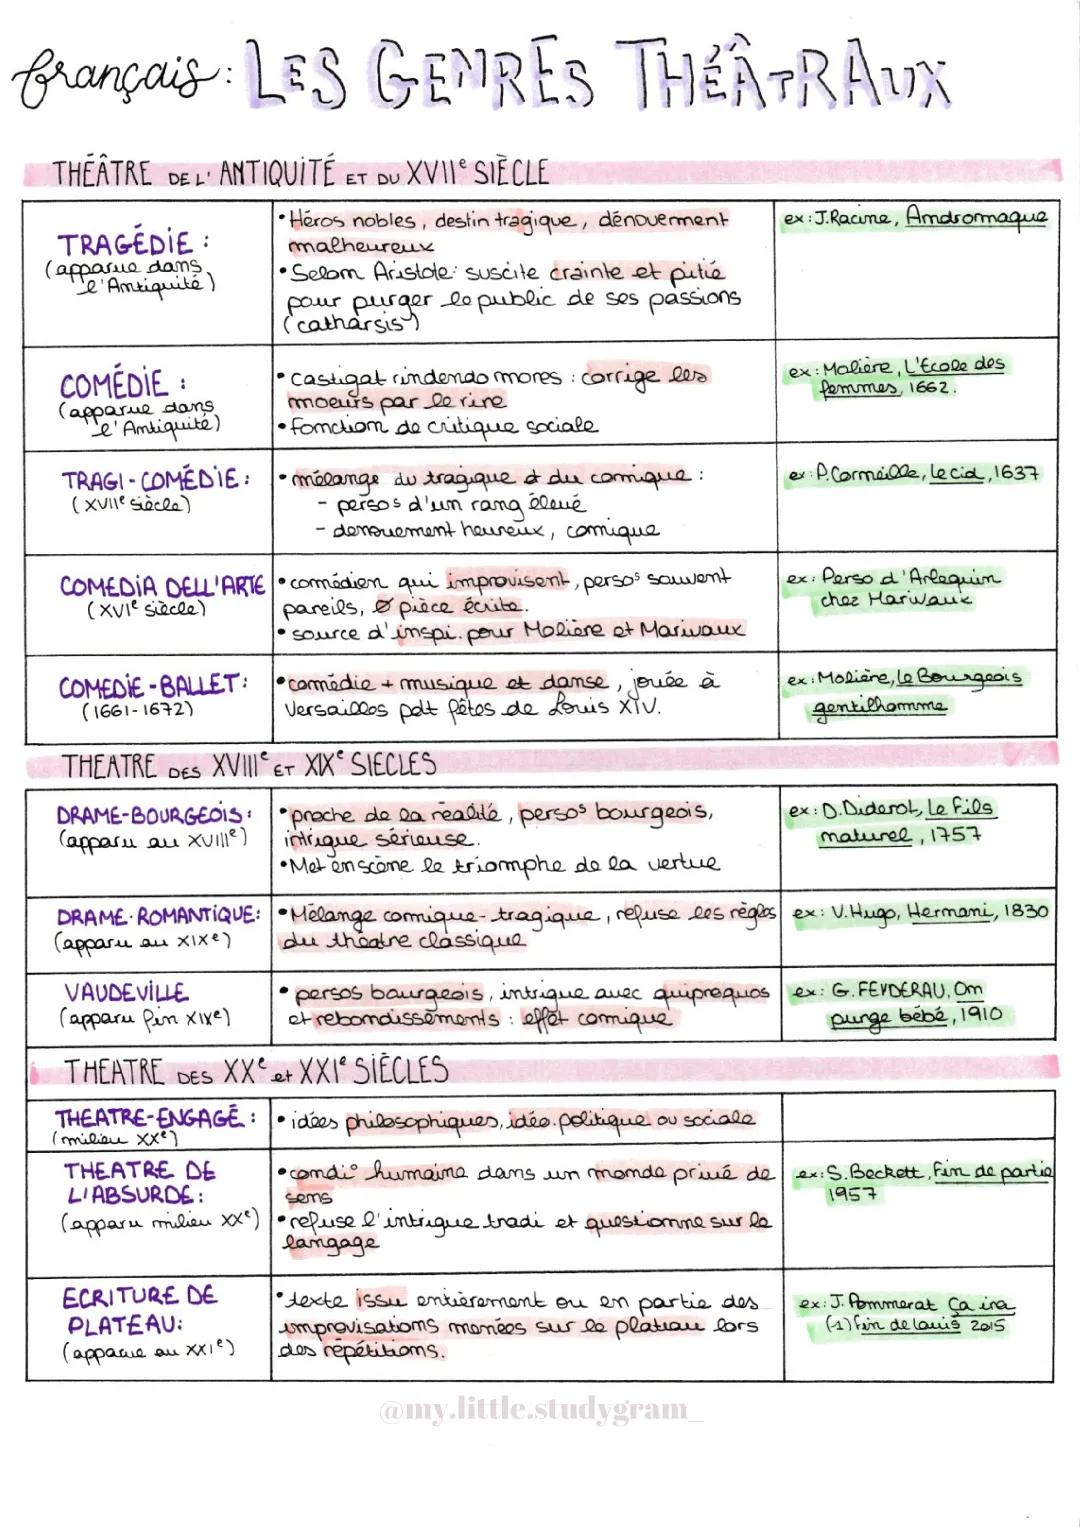 français: LES GENRES THÉÂTRAUX
THÉÂTRE DE L'ANTIQUITÉ ET DU XVIIe SIÈCLE
TRAGÉDIE :
(apparue dans
l'Antiquité)
• Héros nobles, destin tragique, dénouement
malheureux
• Selon Aristote: suscite crainte et pitié
pour purger le public de ses passions
(catharsis)
ex: J.Racine, Andromaque
COMÉDIE :
(apparue dans
l'Antiquité)
• castigat rindendo mores : corrige les
moeurs par le rire
• Fonction de critique sociale
ex: Molière, L'Ecole des
femmes, 1662.
TRAGI-COMÉDIE:
(XVIIe siècle)
• mélange du tragique et du comique :
- persos d'un rang élevé
- denouement heureux, comique
ex: P.Corneille, le cid, 1637
COMEDIA DELL'ARTE
(XVIe siècle)
• comédien qui improvisent, persos souvent
pareils, Ø pièce écrite.
• source d'inspi. pour Molière et Marivaux
ex: Perso d'Arlequin
chez Marivaux
COMEDIE-BALLET:
(1661-1672)
• comédie + musique et danse, jouée à
Versailles pdt fêtes de Louis XIV.
ex: Molière, le Bourgeois
gentilhomme
THEATRE DES XVIIIe ET XIXe SIECLES
DRAME-BOURGEOIS:
(apparu au XVIIIe)
• proche de la réalité, persos bourgeois,
intrigue sérieuse.
• Met en scène le triomphe de la vertue
ex: D.Diderot, Le Fils
naturel, 1757
DRAME-ROMANTIQUE:
(apparu au XIXe)
• Mélange comique-tragique, refuse les règles
du théâtre classique
ex: V.Hugo, Hernani, 1830
VAUDEVILLE
(apparu fin XIXe)
• persos bourgeois, intrigue avec quiproquos
et rebondissements : effet comique
ex: G.FEYDERAU, On
purge bébé, 1910
THEATRE DES XXe et XXIe SIÈCLES
THEATRE-ENGAGÉ :
(milieu XXe)
• idées philosophiques, idéo.politique ou sociale
THEATRE DE
L'ABSURDE:
(apparu milieu XXe)
• condi° humaine dans un monde privé de
sens
• refuse l'intrigue tradi et questionne sur le
langage
ex: S.Beckett, Fin de partie
1957
ECRITURE DE
PLATEAU:
(apparue au XXIe)
• texte issu entièrement ou en partie des
improvisations menées sur le plateau lors
des répétitions.
ex: J. Pommerat Ça ira
(1) fin de louis 2015
@my.little.studygram_